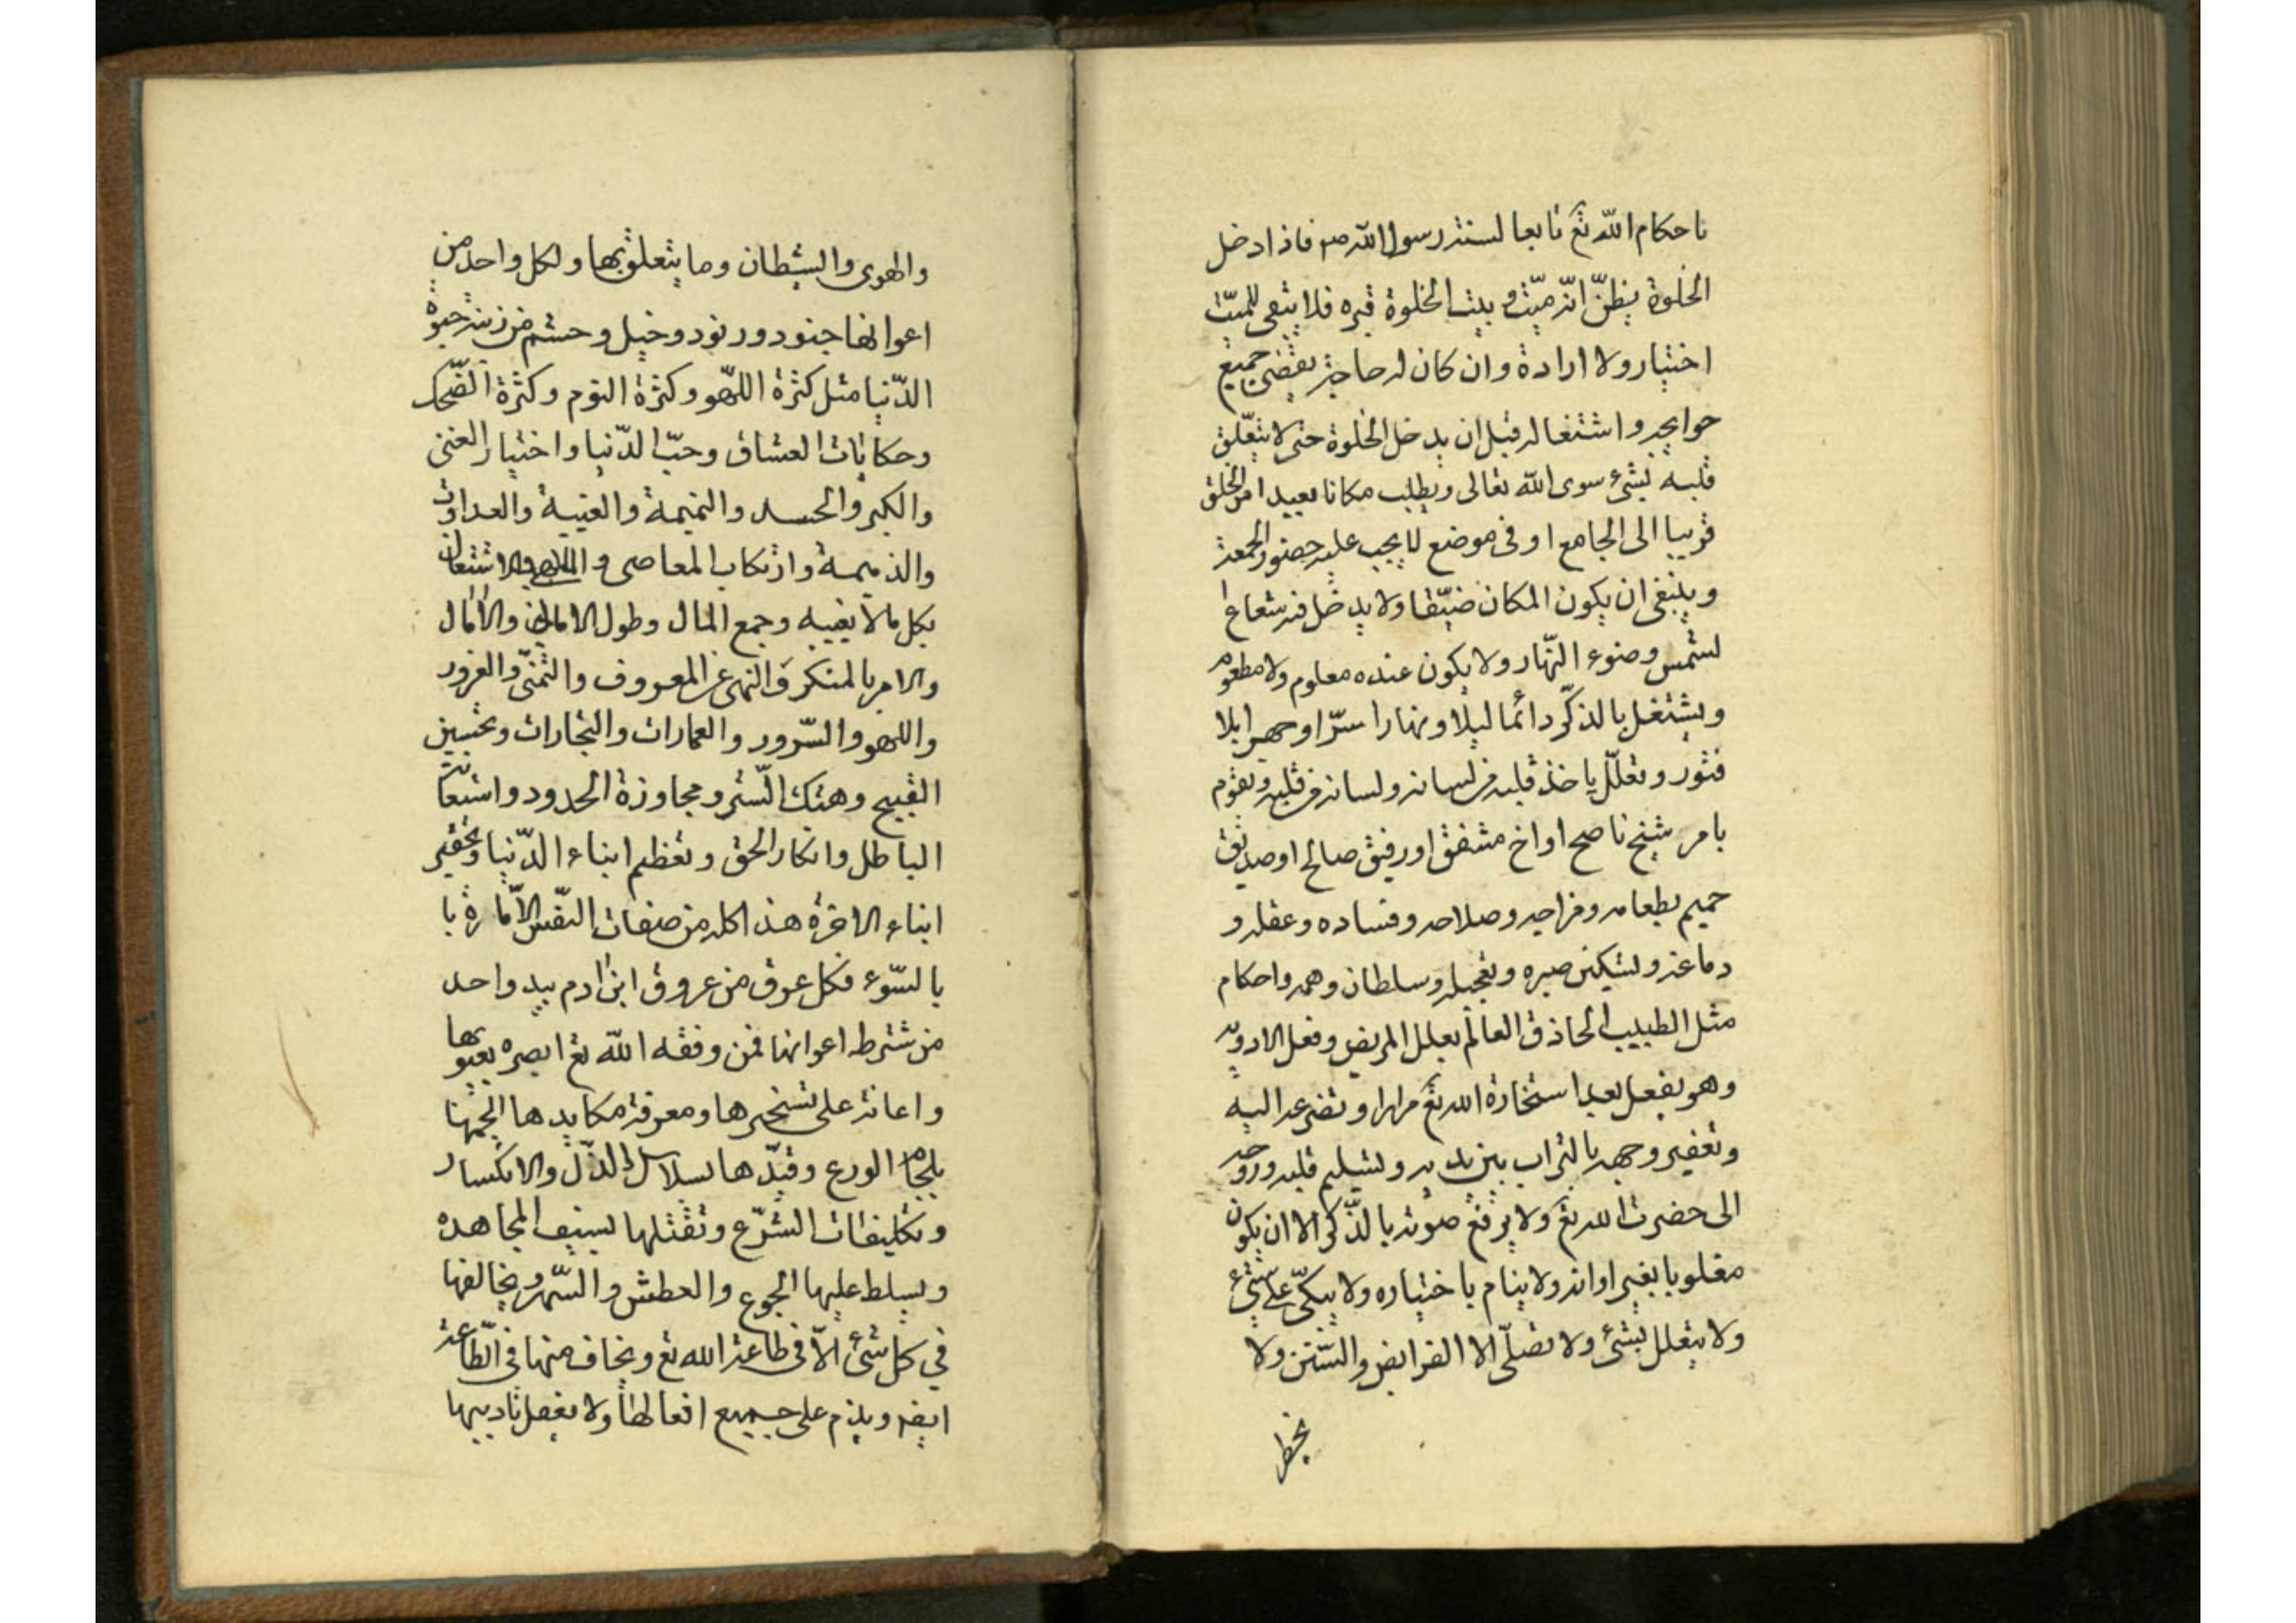 باحكام الله تع تابعا لسنة رسول الله صم فاذا دخل
الخلوة يظنّ انّه ميّت وبيت الخلوة قبره فلا يبقى للميّت
اختيار ولا ارادة وان كان له حاجة يقضى جميع
حوايجه واشتغاله قبل ان يدخل الخلوة حتى لا يتعلّق
قلبه بشئ سوى الله تعالى ويطلب مكانا بعيدا من الخلق
قريبا الى الجامع او فى موضع لا يجب عليه حضور الجمعة
وينبغى ان يكون المكان ضيّقا ولا يدخل فيه شعاع ا
لشمس وضوء النّهار ولا يكون عنده معلوم ولا مطعوم
ويشتغل بالذكر دائما ليلا ونهارا سرّا وجهرا بلا
فتور وتعلّل ياخذ قلبه من لسانه ولسانه من قلبه ويقوم
بامر شيخ ناصح او اخ مشفق او رفيق صالح او صديق
حميم بطعامه ومزاجه وصلاحه وفساده وعقله و
دماغه وتسكين صبره وتعجيله وسلطان وهمه واحكام
مثل الطبيب الحاذق العالم بعلل المريض وفعل الادوية
وهو يفعل بعد استخارة الله تع مرارا وتضرعه اليه
وتعفير وجهه بالتراب بين يديه وتسليم قلبه وروحه
الى حضرت الله تع ولا يرفع صوته بالذّكر الا ان يكون
مغلوبا بغير اوانه ولا ينام باختياره ولا يتكئ على شئ
ولا يتعلل بشئ ولا يصلّى الا الفرايض والسّنن ولا
يخطر
والهوى والشيطان وما يتعلق بها ولكل واحد من
اعوانها جنود ورنود وخيل وحشم من زينة حيوة
الدّنيا مثل كثرة اللّهو وكثرة النوم وكثرة الضّحك
وحكايات العشاق وحبّ الدّنيا واختيار الغنى
والكبر والحسد والنميمة والغيبة والعداوت
والذميمة وارتكاب المعاصى والملاهى والاشتغال
بكل مالا يعنيه وجمع المال وطول الامانى والآمال
والامر بالمنكر والنهى عن المعروف والتمنّى والغرور
واللهو والسّرور والعمارات والتجارات وتحسين
القبيح وهتك السّتر ومجاوزة الحدود واستعانة
الباطل وانكار الحق وتعظيم ابناء الدّنيا وتحقير
ابناء الاخرة هذا كله من صفات النّفس الامّارة با
بالسّوء فكل عرق من عروق ابن ادم بيد واحد
من شرط اعوانها فمن وفقه الله تع ابصره بعيوبها
واعانه على تسخيرها ومعرفة مكايدها الجمها
بلجام الورع وقيّدها بسلاسل الذّل والانكسار
وتكليفات الشرّع وتقتلها بسيف المجاهده
ويسلط عليها الجوع والعطش والسّهر ويخالفها
في كل شئ الاّ فى طاعة الله تع ويخاف منها فى الطّاعة
ايضه ويذم على جميع افعالها ولا يغفل تاديبها